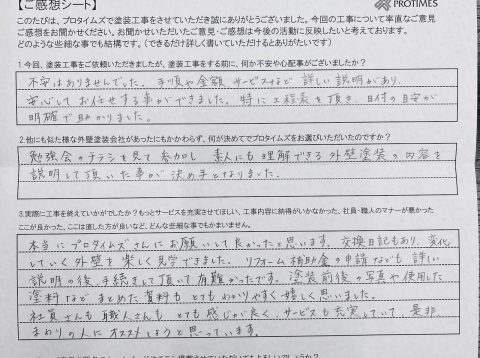 【ご感想シート】
PROTIMES
このたびは、プロタイムズで塗装工事をさせていただき誠にありがとうございました。今回の工事について率直なご意見
ご感想をお聞かせください。お聞かせいただいたご意見・ご感想は今後の活動に反映したいと考えております。
どのような些細な事でも結構です。（できるだけ詳しく書いていただけるとありがたいです）
1.今回、塗装工事をご依頼いただきましたが、塗装工事をする前に、何か不安や心配事がございましたか？
不安はありませんでした。手順や金額、サービスなど詳しい説明があり、
安心してお任せする事ができました。特に工程表を頂き、日付の目安が
明確で助かりました。
2.他にも似た様な外壁塗装会社があったにもかかわらず、何が決めてでプロタイムズをお選びいただいたのですか？
勉強会のチラシを見て参加し、素人にも理解できる外壁塗装の内容を
説明して頂いた事が決め手となりました。
3.実際に工事を終えていかがでしたか？もっとサービスを充実させてほしい、工事内容に納得がいかなかった、社員・職人のマナーが悪かった
ここが良かった、ここは直した方が良いなど、どんな些細な事でもかまいません。
本当にプロタイムズさんにお願いして良かったと思います。交換日記もあり、変化
していく外壁を楽しく見学できました。リフォーム補助金の申請なども詳しい
説明の後、手続きして頂いて有難かったです。塗装前後の写真や使用した
塗料などまとめた資料もとてもわかりやすく嬉しく思いました。
社員さんも職人さんも、とても感じが良く、サービスも充実していて、是非
まわりの人にオススメしようと思っています。